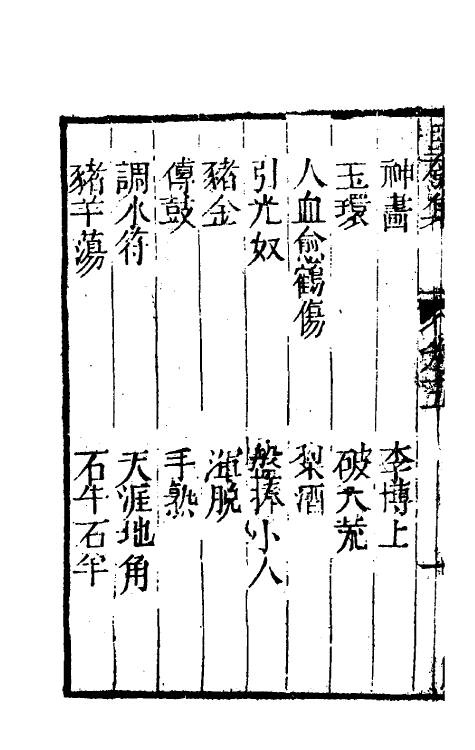 神畵　李博上
玉環　破天荒
人血愈鶴傷　梨酒
引光奴　盤捧小人
豬金　渾脱
傳鼓　手熟
調水符　天涯地角
豬羊蕩　石牛石羊